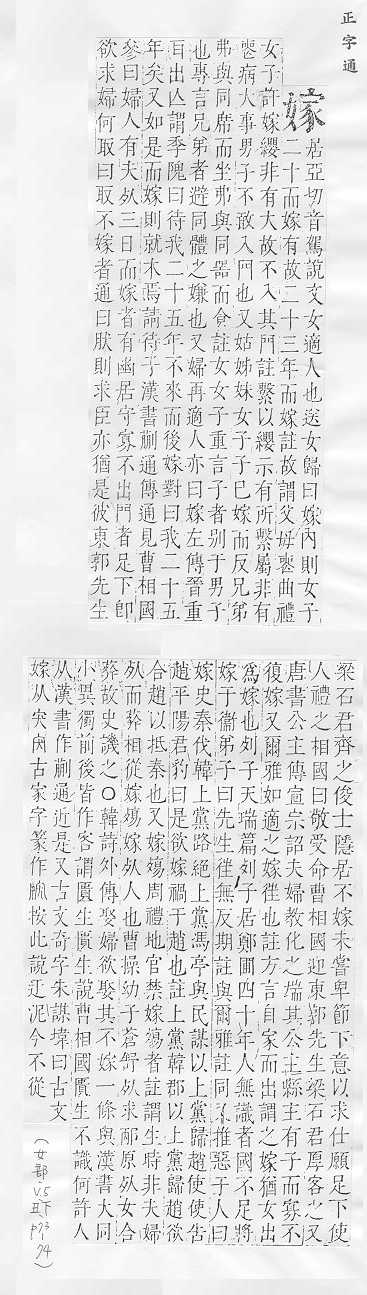 正字通
嫁
居亞切音駕說文女適人也送女歸曰嫁內則女子
二十而嫁有故二十三年而嫁註故謂父母喪曲禮
女子許嫁纓非有大故不入其門註繫以纓示有所繫屬非有
喪病大事男子不敢入門也又姑姊妹女子子已嫁而反兄弟
弗與同席而坐弗與同器而食註女女子重言子者別于男子
也專言兄弟者避同體之嫌也又婦再適人亦曰嫁左傳晉重
耳出亾謂季隗曰待我二十五年不來而後嫁對曰我二十五
年矣又如是而嫁則就木焉請待子漢書蒯通傳通見曹相國
參曰婦人有夫死三日而嫁者有幽居守寡不出門者足下卽
欲求婦何取曰取不嫁者通曰肰則求臣亦猶是彼東郭先生
梁石君齊之俊士隱居不嫁未嘗卑節下意以求仕願足下使
人禮之相國曰敬受命曹相國迎東郭先生梁石君厚客之又
唐書公主傳宣宗詔夫婦敎化之端其公主縣主有子而寡不
復嫁又爾雅如適之嫁徃也註方言自家而出謂之嫁猶女出
爲嫁也列子天瑞篇列子居鄭圃四十年人無識者國不足將
嫁于衞弟子曰先生徃無反期註與爾雅註同推惡于人曰
嫁史秦伐韓上黨路絕上黨馮亭與民謀以上黨歸趙使使告
趙平陽君豹曰是欲嫁禍于趙也註上黨韓郡以上黨歸趙欲
合趙以抵秦也又嫁殤周禮地官禁嫁殤者註謂生時非夫婦
死而葬相從嫁殤嫁死人也曹操幼子蒼舒死求邴原死女合
葬故史譏之○韓詩外傳娶婦欲娶其不嫁一條與漢書大同
小異獨前後皆作客謂匱生匱生說曹相國匱生不識何許人
从漢書作蒯通近是又古文奇字朱謀㙔曰古文
嫁从宊古家字篆作按此說迂泥今不從
(女部 V.5 丑下 p73-74)